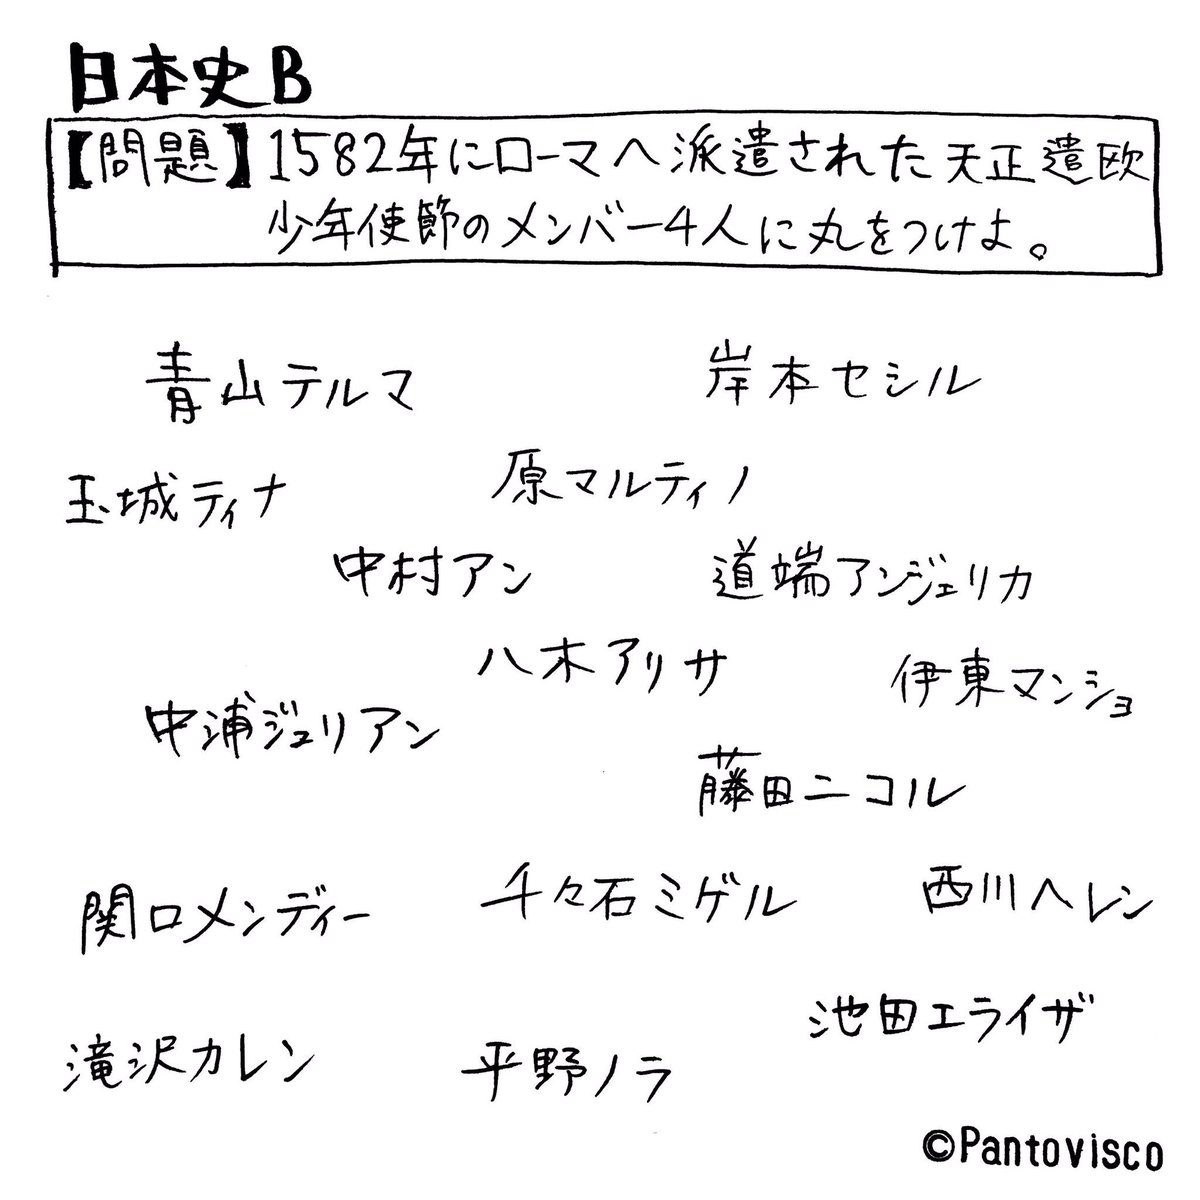 日本史B
【問題】1582年にローマへ派遣された天正遣欧
少年使節のメンバー4人に丸をつけよ。
青山テルマ
岸本セシル
玉城ティナ
原マルティノ
中村アン
道端アンジェリカ
八木アリサ
伊東マンショ
中浦ジュリアン
藤田ニコル
関口メンディー
千々石ミゲル
西川ヘレン
池田エライザ
滝沢カレン
平野ノラ
©Pantovisco